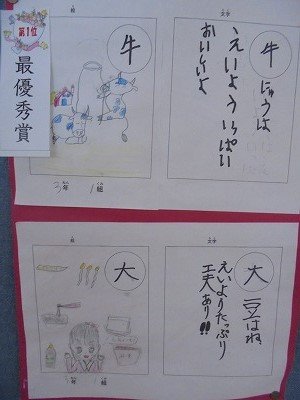 第1位
最優秀賞
絵
牛
3年 1組
文字
牛にゅうは
えいよういっぱい
おいしいよ
絵
大
年 組
文字
大豆はね
えいようたっぷり
工夫あり!!